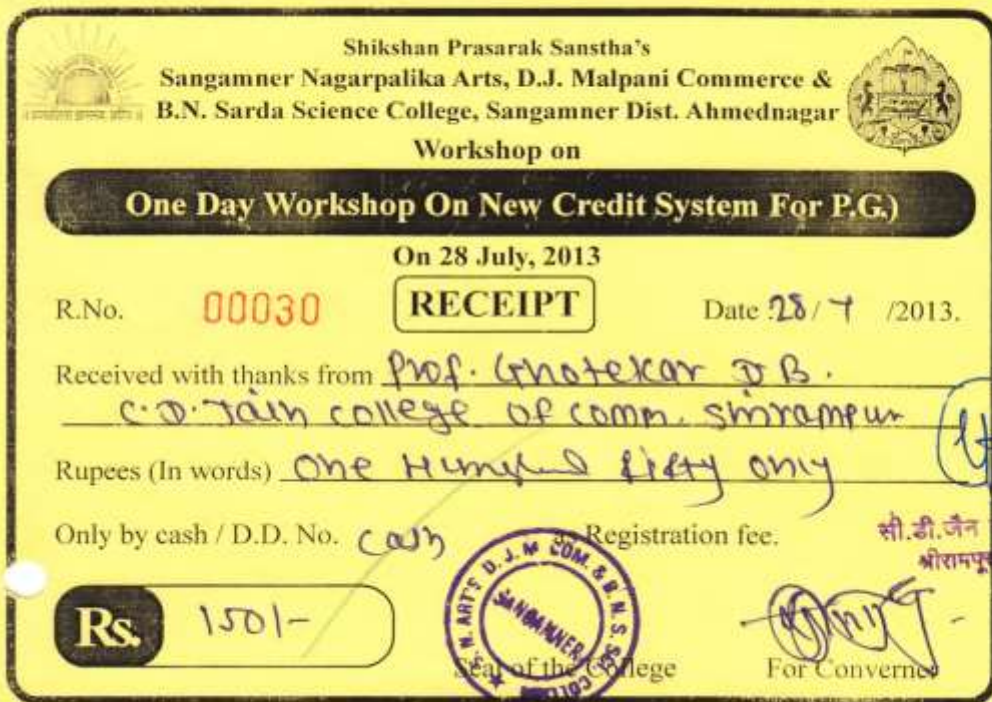 Shikshan Prasarak Sanstha's
Sangamner Nagarpalika Arts, D.J. Malpani Commerce &
B.N. Sarda Science College, Sangamner Dist. Ahmednagar
Workshop on
One Day Workshop On New Credit System For P.G.)
On 28 July, 2013
R.No. 00030 RECEIPT Date :28/ 7 /2013.
Received with thanks from Prof. Ghotekar D B.
C.D. Jain college of comm. Shrirampur
Rupees (In words) One Hundred fifty only
Only by cash / D.D. No. cash as Registration fee.
सी.डी.जैन
श्रीरामपूर
Rs. 150/-
S. N. ART'S D. J. M COM. & B. N. S. SCI. COLLEGE
SANGAMNER
Seal of the College For Converner